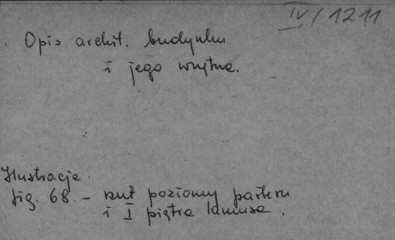 IV/1211
Opis archit. budynku
i jego wnętrza.
Ilustracje.
fig. 68 - rzut poziomy parteru
i I piętra lamusa.